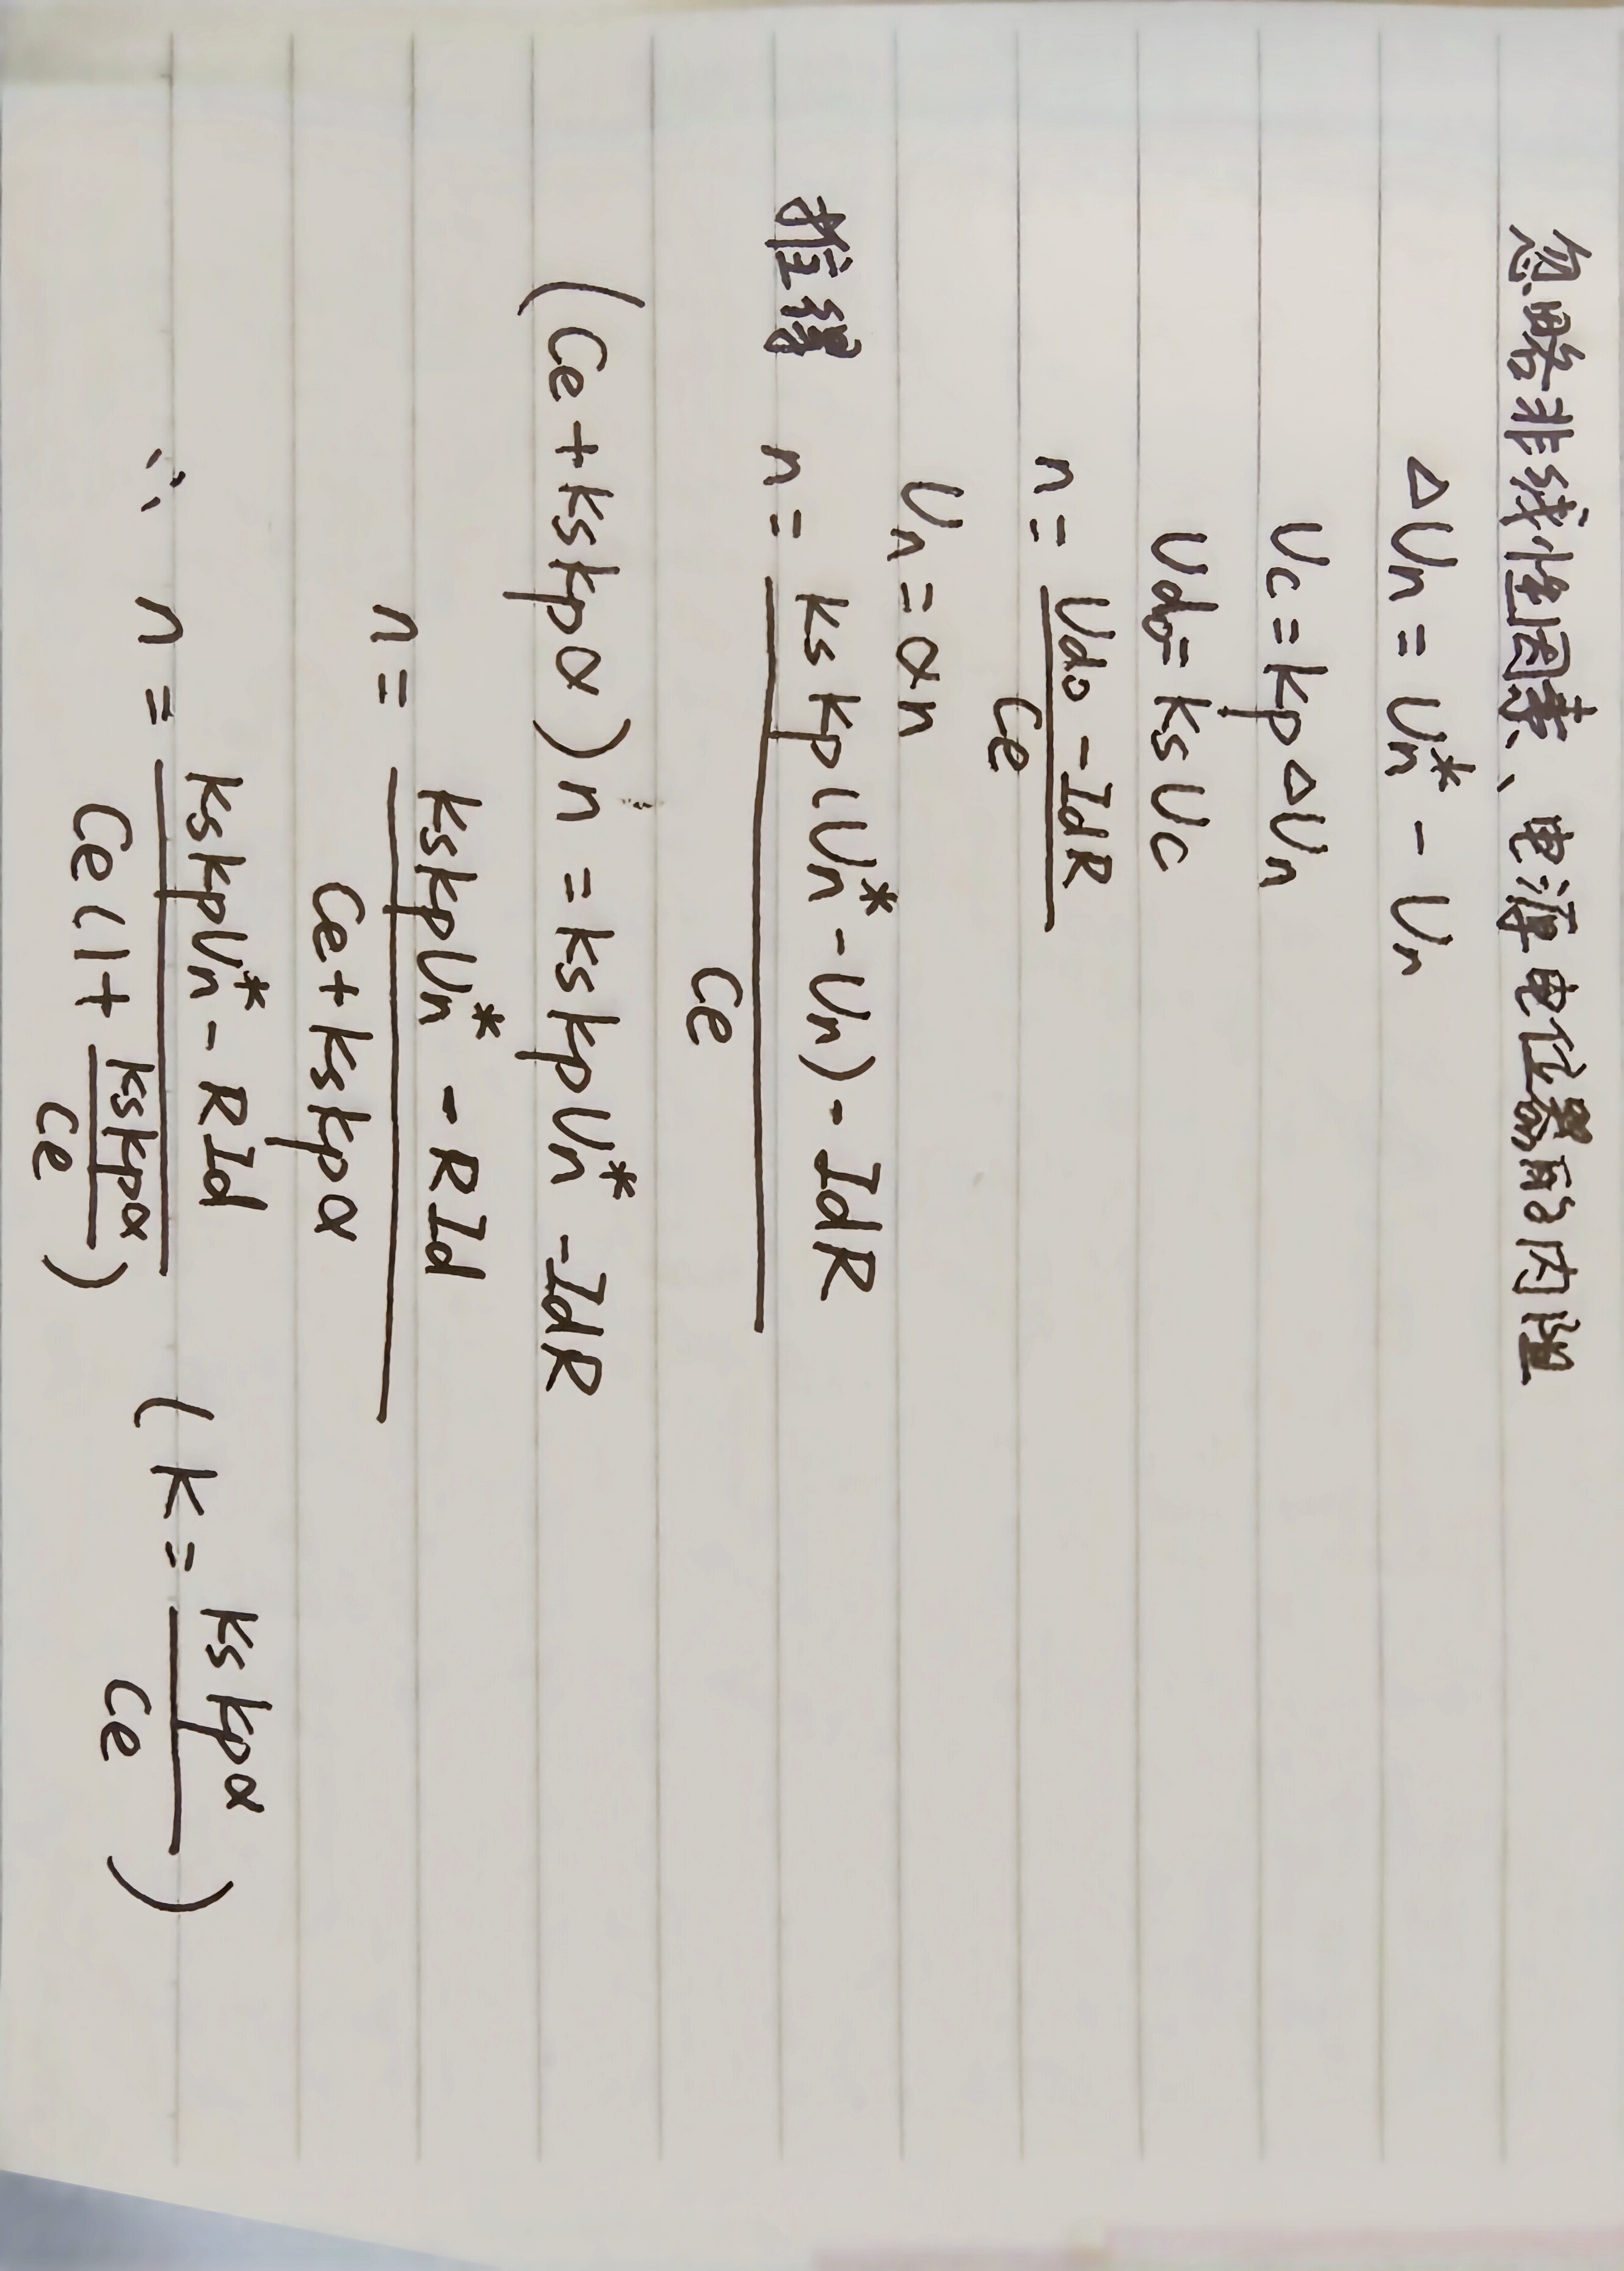 忽略非线性因素、电源电位器的内阻
ΔUn = Un* - Un
Uc = kpΔUn
Ud0 = ksUc
n = (Ud0 - IdR) / Ce
Un = αn
推得 n = (ks kp (Un* - Un) - IdR) / Ce
(Ce + ks kp α) n = ks kp Un* - IdR
n = (ks kp Un* - RId) / (Ce + ks kp α)
∴ n = (ks kp Un* - RId) / (Ce (1 + ks kp α / Ce)) (k = ks kp α / Ce)